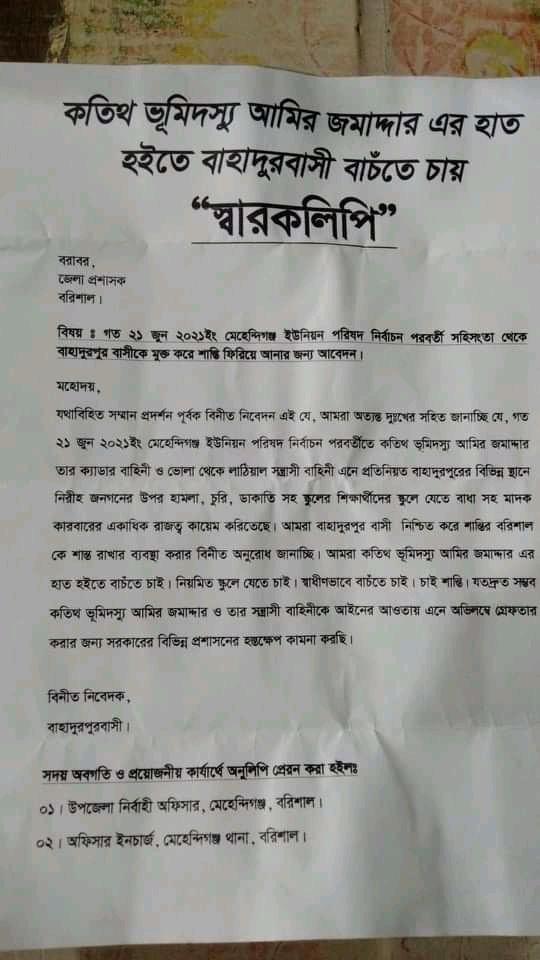 কতিথ ভূমিদস্যু আমির জমাদ্দার এর হাত
হইতে বাহাদুরবাসী বাচঁতে চায়
“স্বারকলিপি”
বরাবর,
জেলা প্রশাসক
বরিশাল।
বিষয় ঃ গত ২১ জুন ২০২১ইং মেহেন্দিগঞ্জ ইউনিয়ন পরিষদ নির্বাচন পরবর্তী সহিসংতা থেকে
বাহাদুরপুর বাসীকে মুক্ত করে শান্তি ফিরিয়ে আনার জন্য আবেদন।
মহোদয়,
যথাবিহিত সম্মান প্রদর্শন পূর্বক বিনীত নিবেদন এই যে, আমরা অত্যন্ত দুঃখের সহিত জানাচ্ছি যে, গত
২১ জুন ২০২১ইং মেহেন্দিগঞ্জ ইউনিয়ন পরিষদ নির্বাচন পরবর্তীতে কতিথ ভূমিদস্যু আমির জমাদ্দার
তার ক্যাডার বাহিনী ও ভোলা থেকে লাঠিয়াল সন্ত্রাসী বাহিনী এনে প্রতিনিয়ত বাহাদুরপুরের বিভিন্ন স্থানে
নিরীহ জনগনের উপর হামলা, চুরি, ডাকাতি সহ স্কুলের শিক্ষার্থীদের স্কুলে যেতে বাধা সহ মাদক
কারবারের একাধিক রাজত্ব কায়েম করিতেছে। আমরা বাহাদুরপুর বাসী নিশ্চিত করে শান্তির বরিশাল
কে শান্ত রাখার ব্যবস্থা করার বিনীত অনুরোধ জানাচ্ছি। আমরা কতিথ ভূমিদস্যু আমির জমাদ্দার এর
হাত হইতে বাচঁতে চাই। নিয়মিত স্কুলে যেতে চাই। স্বাধীণভাবে বাচঁতে চাই। চাই শান্তি। যতদ্রুত সম্ভব
কতিথ ভূমিদস্যু আমির জমাদ্দার ও তার সন্ত্রাসী বাহিনীকে আইনের আওতায় এনে অভিলম্বে গ্রেফতার
করার জন্য সরকারের বিভিন্ন প্রশাসনের হস্তক্ষেপ কামনা করছি।
বিনীত নিবেদক,
বাহাদুরপুরবাসী।
সদয় অবগতি ও প্রয়োজনীয় কার্যার্থে অনুলিপি প্রেরন করা হইলঃ
০১। উপজেলা নির্বাহী অফিসার, মেহেন্দিগঞ্জ, বরিশাল।
০২। অফিসার ইনচার্জ, মেহেন্দিগঞ্জ থানা, বরিশাল।